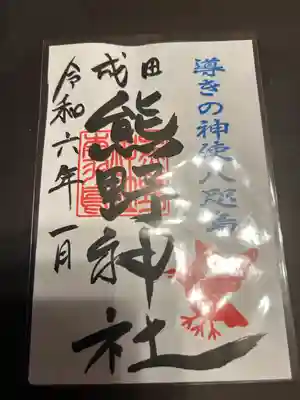 導きの神使八咫烏
成田
熊野神社
令和六年一月